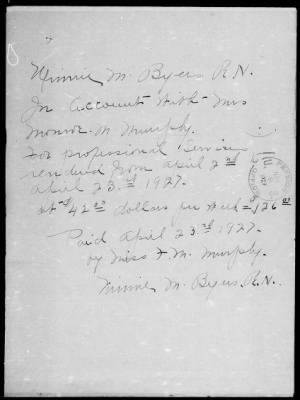 Minnie M. Byers R.N.
In Account with Mrs
Monroe M Murphy.
For professional Service
rendered from april 2nd
April 23.rd 1927.
at $42.00 dollars per week = 126.00
Paid April 23.rd 1927.
by Miss F. M. Murphy.
Minnie M. Byers. R.N.